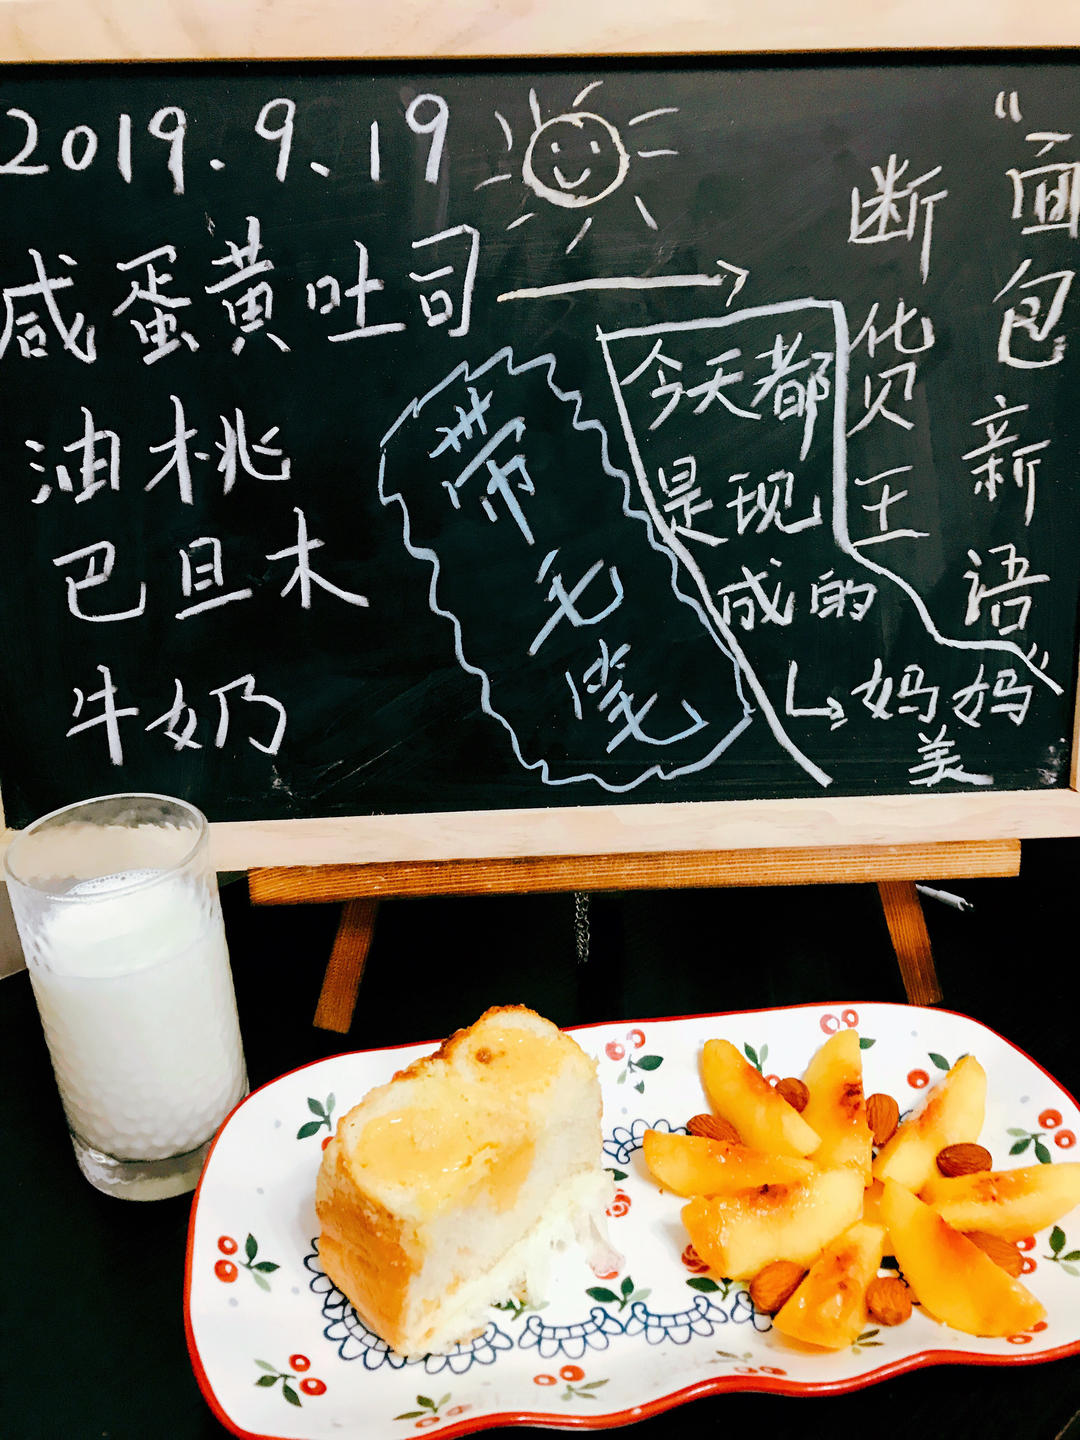 2019.9.19
咸蛋黄吐司→
“面包新语”
断货王
油桃
巴旦木
牛奶
带毛
今天都
是现
成的
妈妈
美